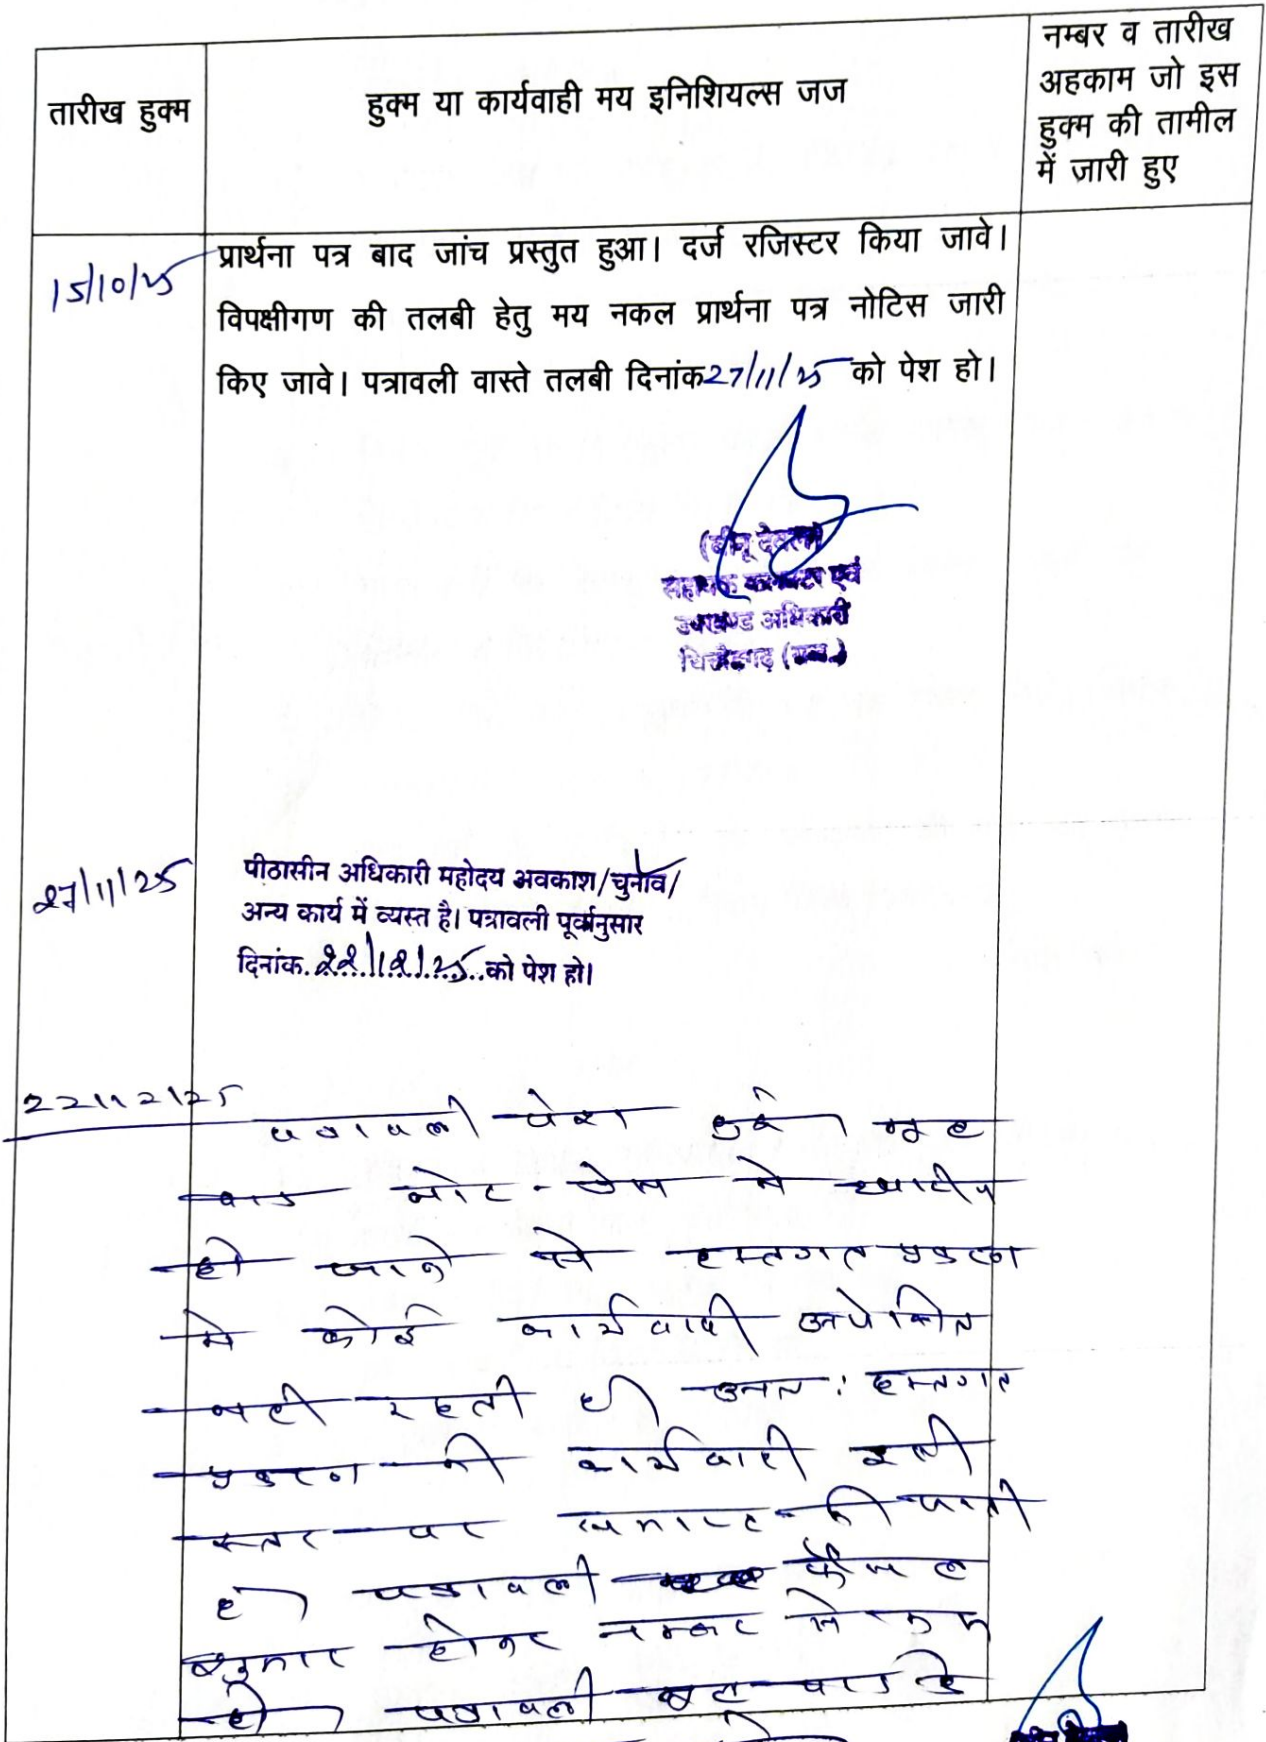 तारीख हुक्म
हुक्म या कार्यवाही मय इनिशियल्स जज
नम्बर व तारीख
अहकाम जो इस
हुक्म की तामील
में जारी हुए
15/10/25
प्रार्थना पत्र बाद जांच प्रस्तुत हुआ। दर्ज रजिस्टर किया जावे।
विपक्षीगण की तलबी हेतु मय नकल प्रार्थना पत्र नोटिस जारी
किए जावे। पत्रावली वास्ते तलबी दिनांक 27/11/25 को पेश हो।
सहायक कलक्टर एवं
उपखण्ड अधिकारी
चित्तौड़गढ़ (राज.)
27/11/25
पीठासीन अधिकारी महोदय अवकाश/चुनाव/
अन्य कार्य में व्यस्त है। पत्रावली पूर्वानुसार
दिनांक 22/12/25 को पेश हो।
22/12/25
पत्रावली पेश हुई। मूल
वाद नोट-प्रेस मे खारीज
हो जाने से हस्तगत प्रकरण
मे कोई कार्यवाही अपेक्षित
नही रहती है। अतः हस्तगत
प्रकरण की कार्यवाही इसी
स्तर पर समाप्त की जाती
है। पत्रावली फैसल
शुमार होकर नम्बर से कम
हो। पत्रावली मूल वाद के